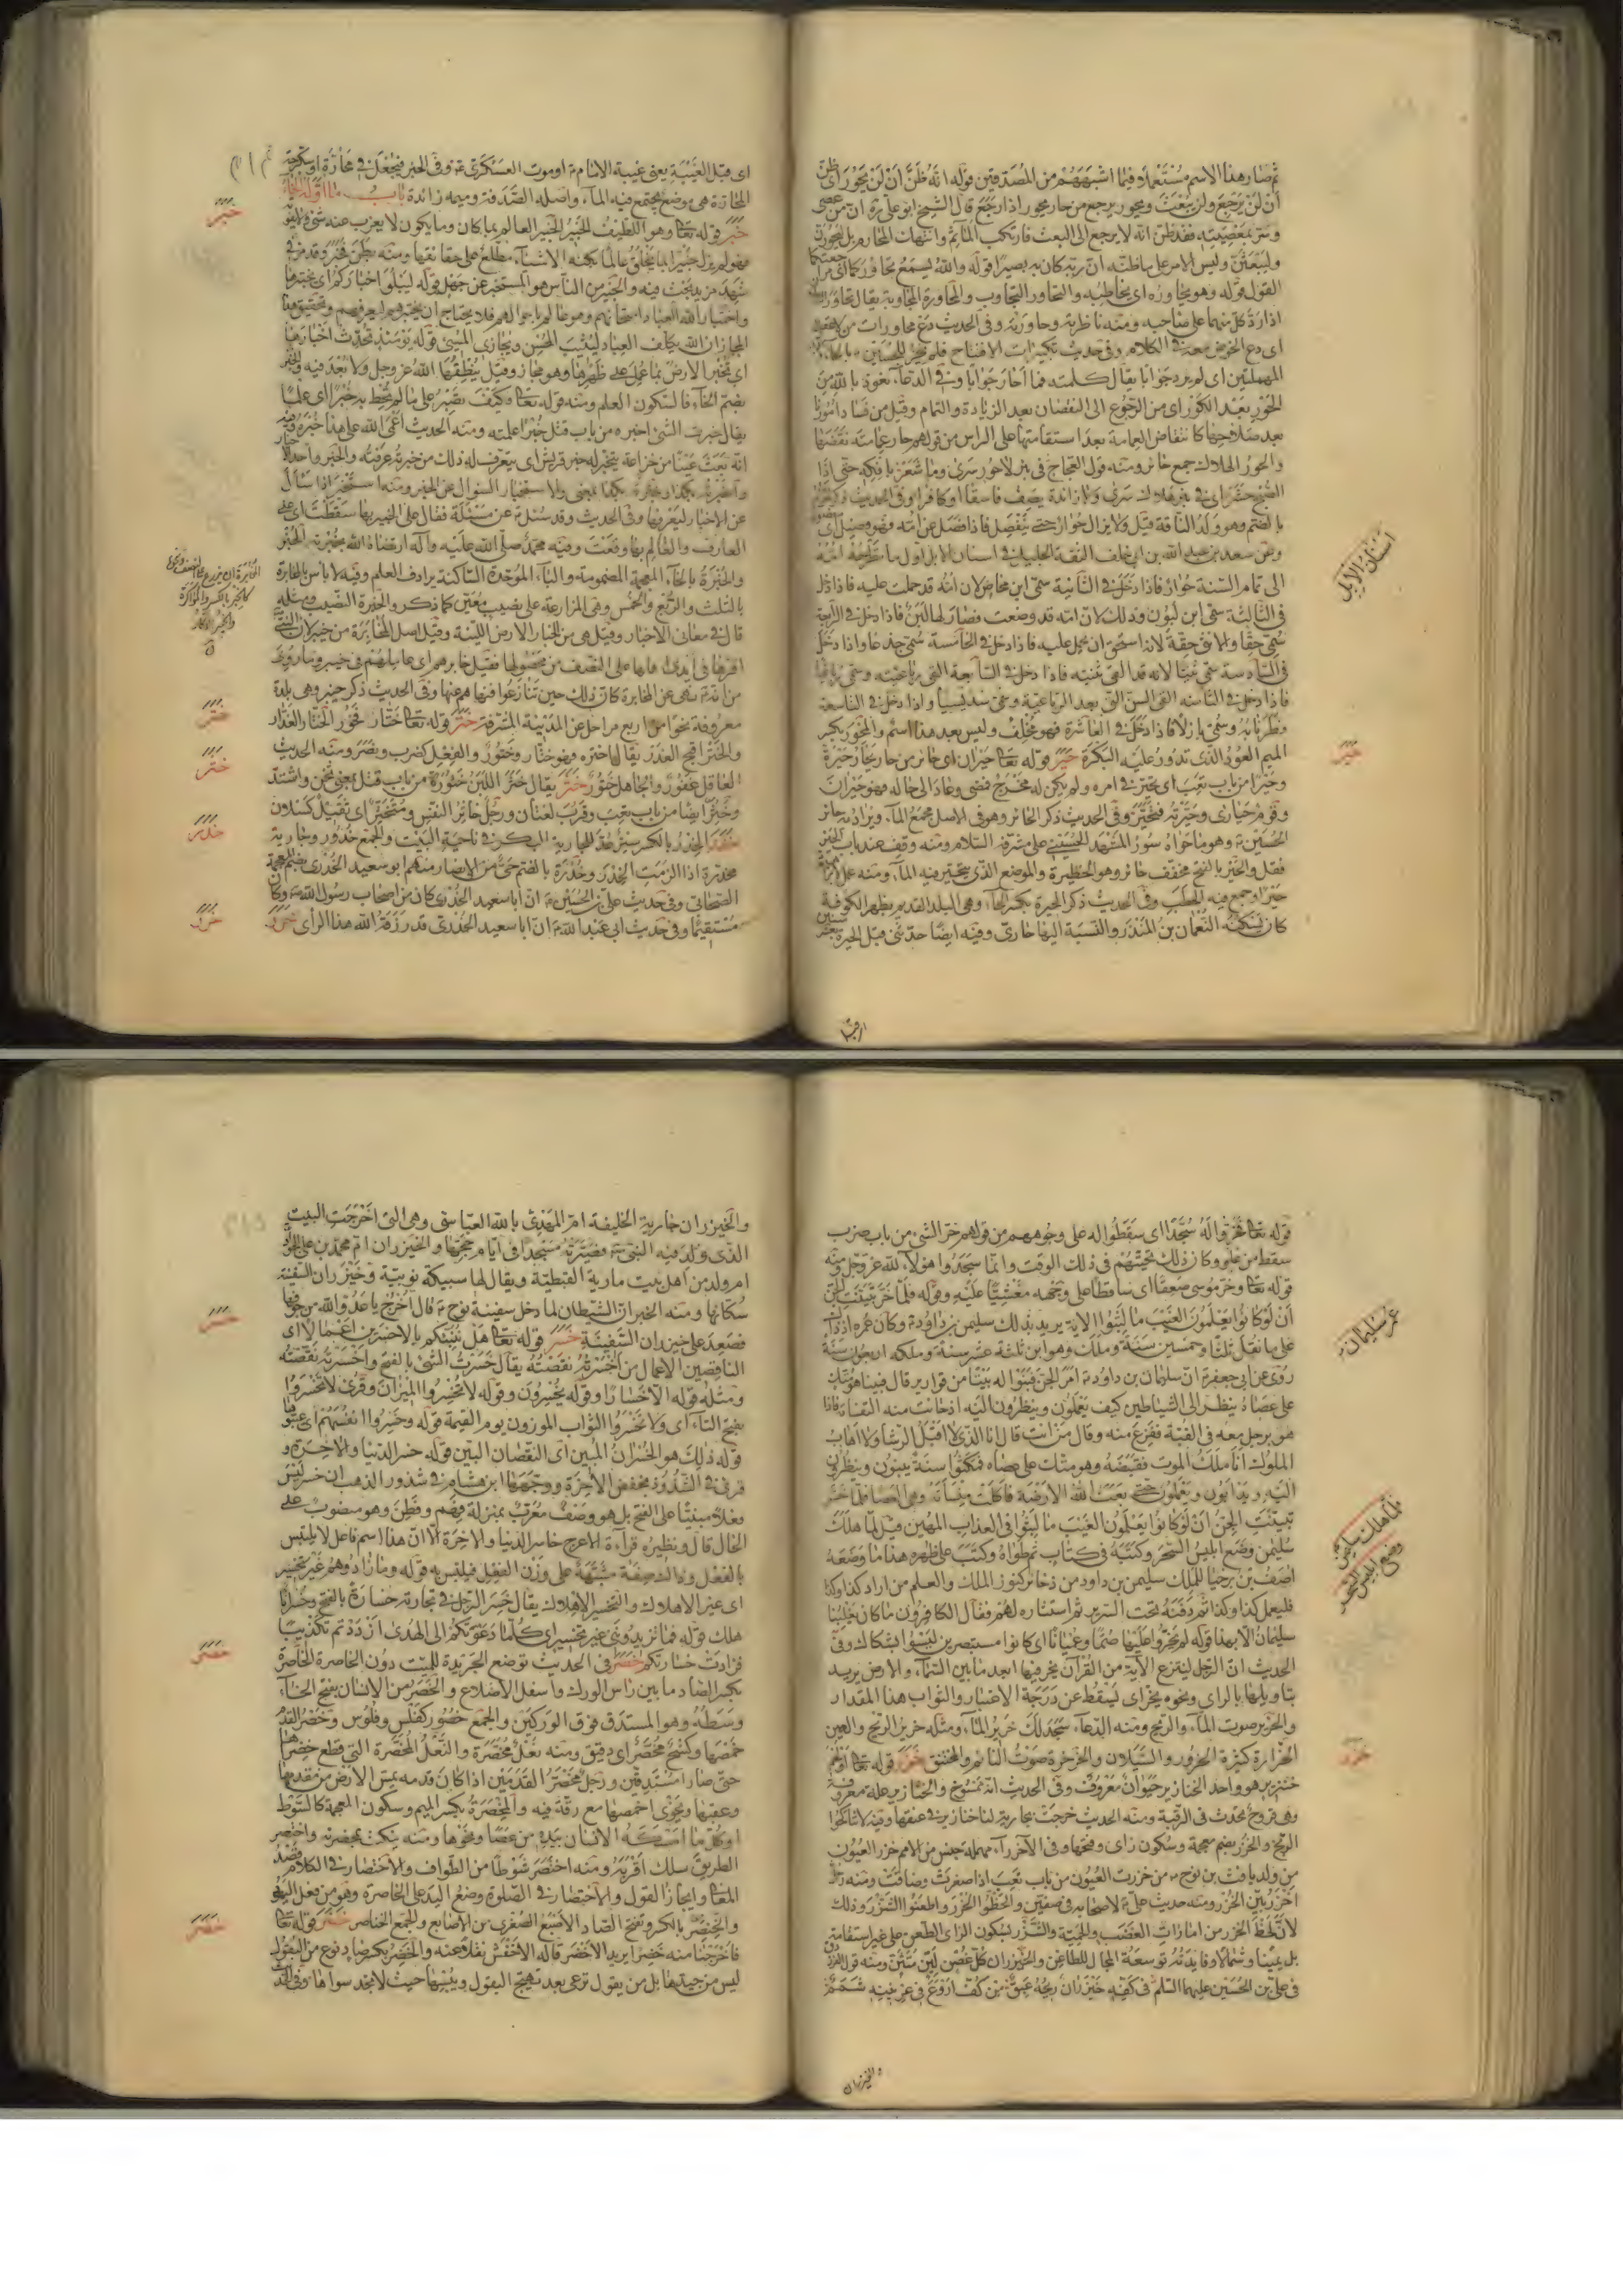 ثم صار هذا الاسم مستعملا فيما اشبههم من المصدقين قوله انه ظن ان لن يحور اي ظن
ان لن يرجع ولن يبعث ويحور يرجع من حار يحور اذا رجع قال الشيخ ابو علي ره ان من عصى
وسر بمعصيته فقد ظن انه لا يرجع الى البعث فارتكب المآثم وانتهات المحارم بل ليحورن
وليبعثن وليس الامر على ما ظنه ان ربه كان به بصيرا قوله والله يسمع تحاوركما اي مراجعتكما
القول قوله وهو يحاوره اي يخاطبه والتحاور التجاوب والمحاورة المجاوبة يقال تحاور
اذا رد كل منهما على صاحبه ومنه ناظرته وحاورته وفي الحديث دع محاورات من لا عقل له
اي دع الخوض معه في الكلام وفي حديث تكبيرات الافتتاح فلم يحر الحسين ع بالحاء
المهملتين اي لم يرد جوابا يقال كلمته فما احار جوابا وفي الدعاء نعوذ بالله من
الحور بعد الكور اي من الرجوع الى النقصان بعد الزيادة والتمام وقيل من فساد امورنا
بعد صلاحها كانتفاض العمامة بعد استقامتها على الراس من قولهم حار عمامته نقضها
والحور الهلاك جمع حائر ومنه قول العجاج في بئر لا حور سرى وما شعر بافكه حتى اذا
الصبح حشر اي في بئر هلاك سرى ولا زائدة يصف فاسقا او كافرا وفي الحديث ذكر الحوار
بالضم وهو ولد الناقة قيل ولا يزال حوارا حتى ينفصل فاذا فصل عن امه فهو فصيل
وعن سعد بن عبد الله بن ابي خلف الثقة الجليل في اسنان الابل اول ما تطرحه امه
الى تمام السنة حوار فاذا دخل في الثانية سمي ابن مخاض لان امه قد حملت عليه فاذا دخل
في الثالثة سمي ابن لبون وذلك لان امه قد وضعت فصار لها لبن فاذا دخل في الرابعة
سمي حقا والانثى حقة لانه استحق ان يحمل عليه فاذا دخل في الخامسة سمي جذعا واذا دخل
في السادسة سمي ثنيا لانه قد القى ثنيته فاذا دخل في السابعة القى رباعيته وسمي رباعيا
فاذا دخل في الثامنة القى السن التي بعد الرباعية وسمي سديسا واذا دخل في التاسعة
فطر نابه وسمي بازلا فاذا دخل في العاشرة فهو مخلف وليس بعد هذا اسم والمحور بكسر
الميم العود الذي تدور عليه البكرة حير قوله تعالى حيران اي حائر من حار يحار حيرة
وحيرا من باب تعب اي تحير في امره ولم يكن له مخرج فمضى وعاد الى حاله فهو حيران
وقوم حيارى وحيرته فتحير وفي الحديث ذكر الحائر وهو في الاصل مجمع الماء ويراد به حائر
الحسين ع وهو ما حواه سور المشهد الحسيني على مشرفه السلام ومنه وقف عند باب الحير
فقل والحير بالفتح مخفف حائر وهو الحظيرة والموضع الذي يتحير فيه الماء ومنه عمل
حيرا وجمع فيه الحطب وفي الحديث ذكر الحيرة بكسر الحاء وهي البلد القديم بظهر الكوفة
كان يسكنه النعمان بن المنذر والنسبة اليها حاري وفيه ايضا حدثني قبل الحيرة
اسنان الابل
حير
اي قبل الغيبة يعني غيبة الامام ع او موت العسكري ع وفي الخبر فيجعل في محارة او سكرجة
المحارة هي موضع يجتمع فيه الماء واصله الصدفة وميمه زائدة باب ما اوله الخاء
خبر قوله تعالى وهو اللطيف الخبير الخبير العالم بما كان وما يكون لا يعزب عنه شيء
فهو لم يزل خبيرا بما يخلق عالما بكنه الاشياء مطلع على حقائقها ومنه بطن فخبر وقد مر في
شهد مزيد بحث فيه والخبير من الناس هو المستخبر عن جهل قوله ليبلو اخباركم اي يختبرها
واختبار الله العباد امتحانهم وهو عالم باحوالهم فلا يحتاج ان يختبرهم ليعرفهم وتحقيق هذا
المجاز ان الله يكلف العباد ليثيب المحسن ويجازي المسيء قوله يومئذ تحدث اخبارها
اي تخبر الارض بما عمل على ظهرها وهو مجاز وقيل ينطقها الله عز وجل ولا بعد فيه والخبر
بضم الخاء فالسكون العلم ومنه قوله تعالى وكيف تصبر على ما لم تحط به خبرا اي علما
يقال خبرت الشيء اخبره من باب قتل خبرا علمته ومنه الحديث اعمى الله على هذا خبره وفيه
انه بعث عينا من خزاعة يتخبر له خبر قريش اي يتعرف له ذلك من خبرته عرفته والخبر واحد الاخبار
واخبرته بكذا وخبرته بكذا بمعنى والاستخبار السؤال عن الخبر ومنه استخبر اذا سأل
عن الاخبار ليعرفها وفي الحديث وقد سئل ع عن مسئلة فقال على الخبير بها سقطت اي على
العارف والعالم بها وقعت وفيه محمد صلى الله عليه وآله ارتضاه الله بخبرته الخبر
والخبرة بالخاء المعجمة المضمومة والباء الموحدة الساكنة يرادف العلم وفيه لا باس بالمخابرة
بالثلث والربع والخمس وهي المزارعة على نصيب معين كما ذكر والخبرة النصيب ومثله
قال في معاني الاخبار وقيل هي من الخبار الارض اللينة وقيل اصل المخابرة من خيبر لان النبي ص
اقرها في ايدي اهلها على النصف من محصولها فقيل خابرهم اي عاملهم في خيبر وما روي
من انه ص نهى عن المخابرة كان ذلك حين تنازعوا فنهاهم عنها وفي الحديث ذكر خيبر وهي بلدة
معروفة نحوا من اربع مراحل عن المدينة المشرفة ختر قوله تعالى ختار فخور الختار الغدار
والختر اقبح الغدر يقال ختره فهو ختار وختور والفعل كضرب ونصر ومنه الحديث
العاقل غفور والجاهل ختور خثر يقال خثر اللبن خثورة من باب قتل بمعنى ثخن واشتد
وخثر ايضا من باب تعب وقرب لغتان ورجل خاثر النفس ومتخثر اي ثقيل كسلان
خدر الخدر بالكسر ستر يمد للجارية البكر في ناحية البيت والجمع خدور وجارية
مخدرة اذا الزمت الخدر وخدرة بالضم حي من الانصار منهم ابو سعيد الخدري
الصحابي وفي حديث علي بن الحسين ع ان ابا سعيد الخدري كان من اصحاب رسول الله ص وكان
مستقيما وفي حديث ابي عبد الله ع ان ابا سعيد الخدري قد رزقه الله هذا الراي خرر
خبر
ختر
خثر
خدر
خرر
قوله تعالى فخروا له سجدا اي سقطوا له على وجوههم من قولهم خر الشيء من باب ضرب
سقط من علو وكان ذلك تحيتهم في ذلك الوقت وانما سجدوا هؤلاء لله عز وجل ومنه
قوله تعالى وخر موسى صعقا اي ساقطا على وجهه مغشيا عليه وقوله فلما خر تبينت الجن
ان لو كانوا يعلمون الغيب ما لبثوا الآية يريد بذلك سليمن بن داود ع وكان عمره اذ ذاك
على ما نقل ثلثا وخمسين سنة وملك وهو ابن ثلثة عشر سنة وملكه اربعون سنة
روي عن ابي جعفر ع ان سليمان بن داود ع امر الجن فبنوا له بيتا من قوارير قال فبينا هو متكئ
على عصاه ينظر الى الشياطين كيف يعملون وينظرون اليه اذ حانت منه التفاتة فاذا
هو برجل معه في القبة ففزع منه وقال من انت قال انا الذي لا اقبل الرشا ولا اهاب
الملوك انا ملك الموت فقبضه وهو متكئ على عصاه فمكثوا سنة يبنون وينظرون
اليه ويدأبون ويعملون حتى بعث الله الارضة فاكلت منسأته وهي العصا فلما خر
تبينت الجن ان لو كانوا يعلمون الغيب ما لبثوا في العذاب المهين قيل لما هلك
سليمن وضع ابليس السحر وكتبه في كتاب ثم طواه وكتب على ظهره هذا ما وضعه
اصف بن برخيا للملك سليمن بن داود من ذخائر كنوز الملك والعلم من اراد كذا وكذا
فليعمل كذا وكذا ثم دفنه تحت السرير ثم استثاره لهم فقال الكافرون ما كان يغلبنا
سليمان الا بهذا قوله لم يخروا عليها صما وعميانا اي كانوا مستبصرين ليسوا بشكاك وفي
الحديث ان الرجل لينزع الآية من القرآن يخر فيها ابعد ما بين السماء والارض يريد
بتاويلها بالراي ونحوه يخر اي يسقط عن درجة الاعتبار والثواب هذا المقدار
والخرير صوت الماء والريح ومنه الدعاء سجد لك خرير الماء ومثله خرير الريح والعين
الخرارة كثيرة الخرور والسيلان والخرخرة صوت النائم والمختنق خزر قوله تعالى او لحم
خنزير هو واحد الخنازير حيوان معروف وفي الحديث انه ممسوخ والخنازير علة معروفة
وهي قروح تحدث في الرقبة ومنه الحديث خرجت بجارية لنا خنازير في عنقها وفيه لا تناكحوا
الزنج والخزر بضم معجمة وسكون زاي وفتحها وفي الآخر راء مهملة جنس من الامم خزر العيون
من ولد يافث بن نوح ع من خزرت العيون من باب تعب اذا صغرت وضاقت ومنه رجل
اخزر بين الخزر ومنه حديث علي ع لاصحابه في صفين والحظوا الخزر واطعنوا الشزر وذلك
لان لحظ الخزر من امارات الغضب والحمية والشزر بسكون الزاي الطعن على غير استقامة
بل يمينا وشمالا وفايدته توسعة المجال للطاعن والخيزران كل غصن لين متثن ومنه قول الفرزدق
في علي بن الحسين عليهما السلم في كفه خيزران ريحه عبق من كف اروع في عرنينه شمم
عمر سليمان
لما هلك سليمن
وضع ابليس السحر
خزر
والخيزران
والخيزران جارية الخليفة ام المهدي بالله العباسي وهي التي اخرجت البيت
الذي ولد فيه النبي ص فصيرته مسجدا في ايام حجها والخيزران ام محمد بن علي الجواد
ام ولد من اهل بيت مارية القبطية ويقال لها سبيكة نوبية وخيزران السفينة
سكانها ومنه الخبر ان الشيطان لما دخل سفينة نوح ع قال اخرج يا عدو الله من جوفها
فصعد على خيزران السفينة خسر قوله تعالى هل ننبئكم بالاخسرين اعمالا اي
الناقصين الاعمال من اخسرته نقصته يقال خسرت الشيء بالفتح واخسرته نقصته
ومثله قوله الا خسارا وقوله يخسرون وقوله لا تخسروا الميزان وقرئ لا تخسروا
بفتح التاء اي ولا تخسروا الثواب الموزون يوم القيمة قوله وخسروا انفسهم اي غبنوها
قوله ذلك هو الخسران المبين اي النقصان البين قوله خسر الدنيا والآخرة و
قرئ في الشذوذ بخفض الآخرة ووجهها ابن هشام في شذور الذهب ان خسر ليس
فعلا مبنيا على الفتح بل هو وصف معرب بمنزلة فهم وفطن وهو منصوب على
الحال قال ونظيره قراءة الاعرج خاسر الدنيا والآخرة الا ان هذا اسم فاعل لا يلتبس
بالفعل وذلك صفة مشبهة على وزن الفعل فيلتبس به قوله وما زادوهم غير تخسير
اي غير الاهلاك والتخسير الاهلاك يقال خسر الرجل في تجارته خسارة بالفتح وخسرانا
هلك قوله فما تزيدونني غير تخسير اي كلما دعوتكم الى الهدى ازددتم تكذيبا
فزادت خسارتكم خصر في الحديث توضع الجريدة للميت دون الخاصرة الخاصرة
بكسر الصاد ما بين راس الورك واسفل الاضلاع والخصر من الانسان بفتح الخاء
وسطه وهو المستدق فوق الوركين والجمع خصور كفلس وفلوس وخصر القدم
خمصها وكشح مخصر اي دقيق ومنه نعل مخصرة والنعل المخصرة التي قطع خصراها
حتى صارا مستدقين ورجل مخصر القدمين اذا كان قدمه يمس الارض من مقدمها
وعقبها ويخوى اخمصها مع رقة فيه والمخصرة بكسر الميم وسكون المعجمة كالسوط
او كل ما امسكه الانسان بيده من عصا ونحوها ومنه ينكت بمخصرته واختصر
الطريق سلك اقربه ومنه اختصر شوطا من الطواف والاختصار في الكلام قصد
المعاني وايجاز القول والاختصار في الصلوة وضع اليد على الخاصرة وهو من فعل اليهود
والخنصر بالكسر وتفتح الصاد الاصبع الصغرى من الاصابع والجمع الخناصر خضر قوله تعالى
فاخرجنا منه خضرا يريد الاخضر قاله الاخفش نقلا عنه والخضر بكسر ضاد نوع من البقول
ليس من جيدها بل من بقول ترعى بعد تهيج البقول ويبسها حيث لا تجد سواها وفي الحديث
خسر
خصر
خضر